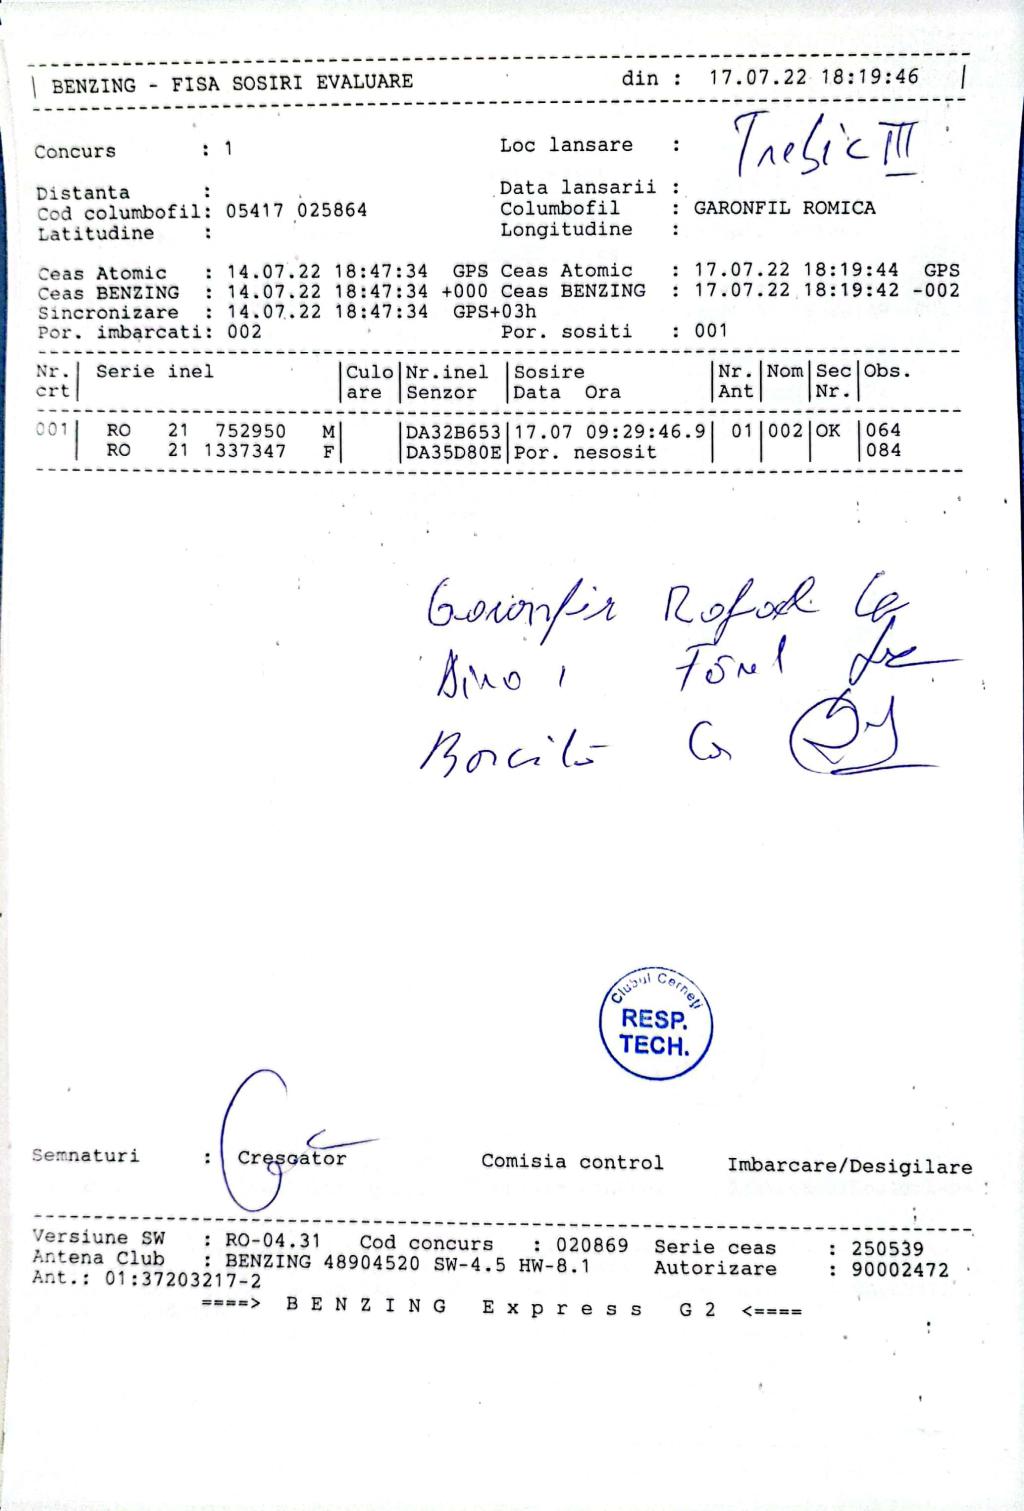 BENZING - FISA SOSIRI EVALUARE din : 17.07.22 18:19:46
Concurs : 1 Loc lansare : Trebic III
Distanta : Data lansarii :
Cod columbofil: 05417 025864 Columbofil : GARONFIL ROMICA
Latitudine : Longitudine :
Ceas Atomic : 14.07.22 18:47:34 GPS Ceas Atomic : 17.07.22 18:19:44 GPS
Ceas BENZING : 14.07.22 18:47:34 +000 Ceas BENZING : 17.07.22 18:19:42 -002
Sincronizare : 14.07.22 18:47:34 GPS+03h
Por. imbarcati: 002 Por. sositi : 001
Nr. | Serie inel | Culo | Nr.inel | Sosire | Nr. | Nom | Sec | Obs.
crt | | are | Senzor | Data Ora | Ant | | Nr. |
001 | RO 21 752950 M | | DA32B653 | 17.07 09:29:46.9 | 01 | 002 | OK | 064
RO 21 1337347 F | | DA35D80E | Por. nesosit | | | | 084
Clubul Cerneți
RESP.
TECH.
Semnaturi : Crescator Comisia control Imbarcare/Desigilare
Versiune SW : RO-04.31 Cod concurs : 020869 Serie ceas : 250539
Antena Club : BENZING 48904520 SW-4.5 HW-8.1 Autorizare : 90002472
Ant.: 01:37203217-2
====> B E N Z I N G E x p r e s s G 2 <====